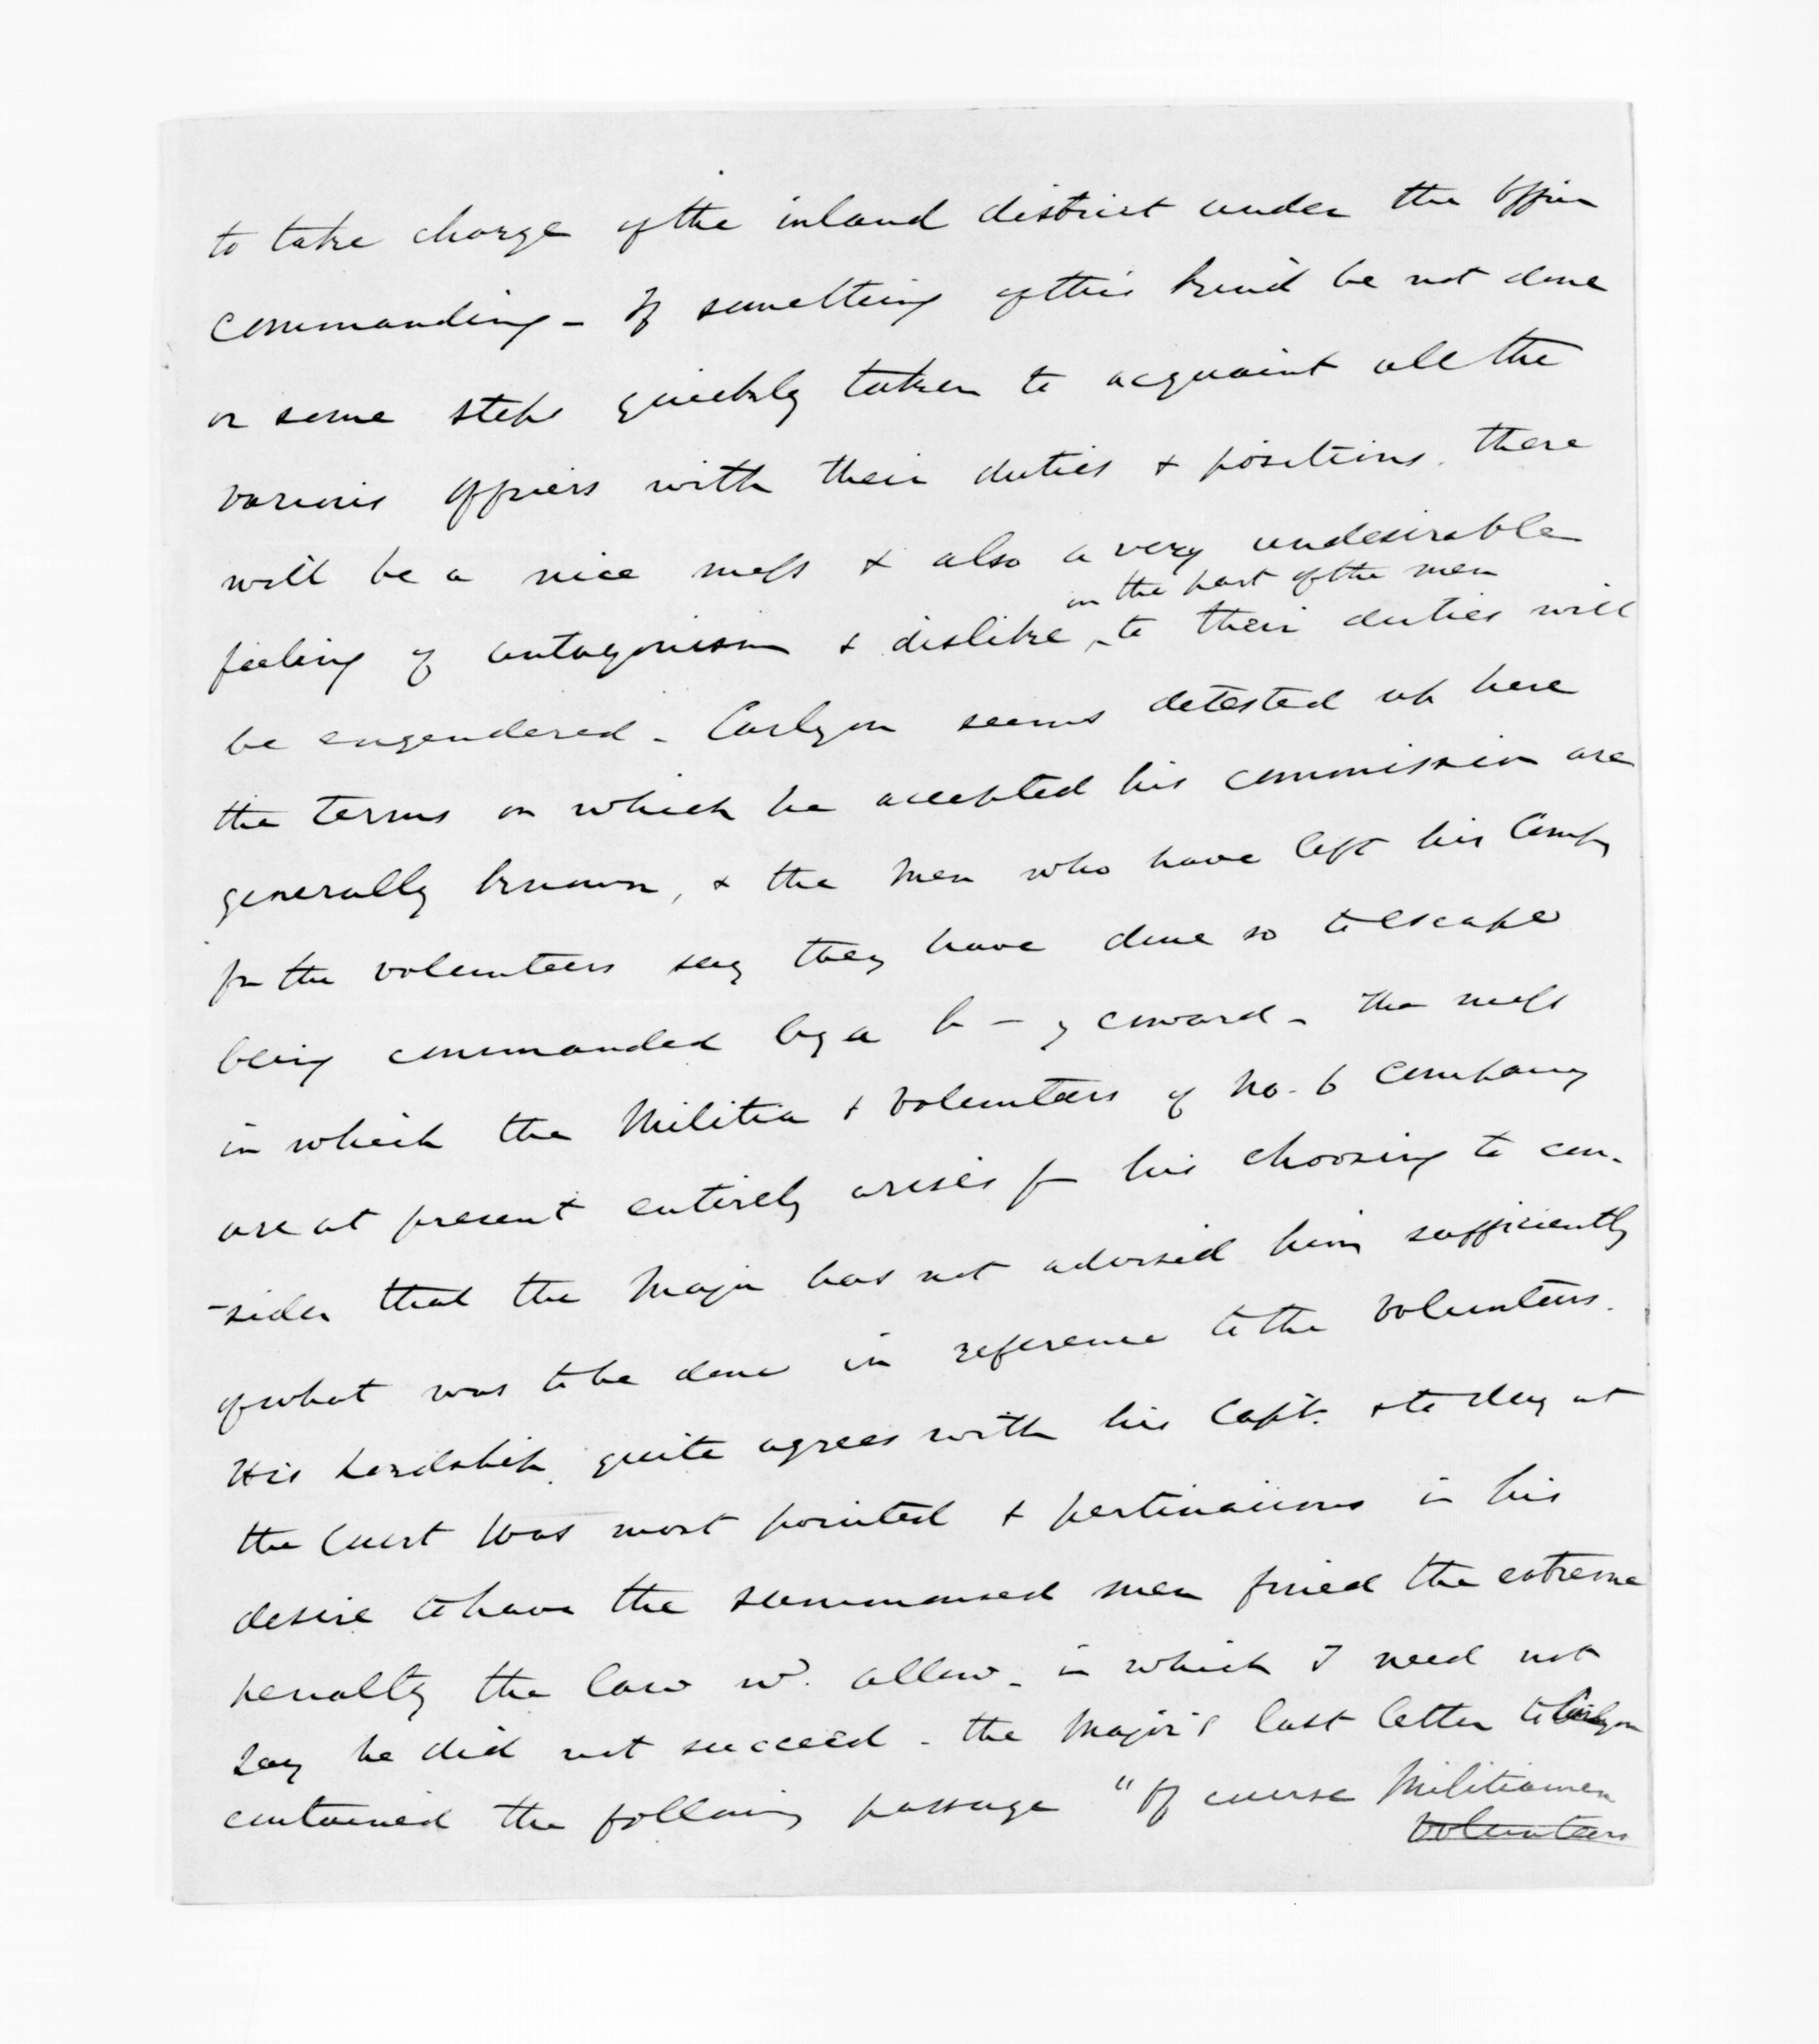 to take charge of the inland district under the Officer
commanding - If something of this kind be not done
or some steps quickly taken to acquaint all the
various Officers with their duties & positions, there
will be a nice mess & also a very undesirable
on the part of the men
feeling of antagonism & dislike to their duties will
be engendered - Carlyon seems detested up here
the terms on which he accepted his commission are
generally known, & the men who have left his Compy
for the volunteers say they have done so to escape
being commanded by a b—y coward - The mess
in which the Militia & Volunteers of No. 6 Company
are at present entirely arises fm his choosing to con-
-sider that the Major has not advised him sufficiently
of what was to be done in reference to the Volunteers.
His Lordship quite agrees with his Capt. & to day at
the Court was most pointed & pertinacious in his
desire to have the summonsed men fined the extreme
penalty the law wd. allow - in which I need not
say he did not succeed - the Major's last letter to Carlyon
contained the following passage "Of course Militiamen
Volunteers